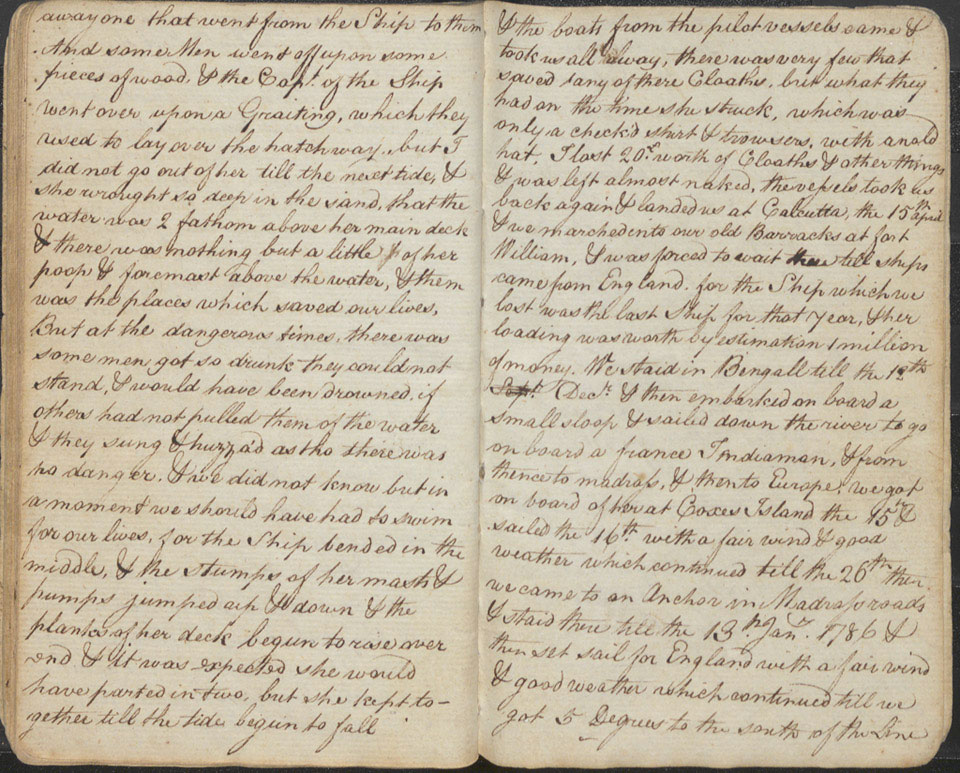 away one that went from the Ship to them
And some Men went off upon some
pieces of wood, & the Capt. of the Ship
went over upon a Graiting, which they
used to lay over the hatchway, but I
did not go out of her till the next tide, &
she wrought so deep in the sand, that the
water was 2 fathom above her main deck
& there was nothing but a little of her
poop & foremast above the water, & them
was the places which saved our lives,
But at the dangerous times, there was
some men got so drunk they could not
stand, & would have been drowned, if
others had not pulled them of the water
& they sung & huzza'd as tho there was
no danger. & we did not know but in
a moment we should have had to swim
for our lives, for the Ship bended in the
middle, & the stumps of her masts &
pumps jumped up & down & the
planks of her deck begun to rise over
end & it was expected she would
have parted in two, but she kept to-
gether till the tide begun to fall
& the boats from the pilot vessels came &
took us all away, there was very few that
saved any of there Cloaths, but what they
had on the time she struck, which was
only a check'd shirt & trowsers, with an old
hat, I lost 20£ worth of Cloaths & other things
& was left almost naked, the vessels took us
back again & landed us at Calcutta, the 15th April
& we marched into our old Barracks at fort
William, & was forced to wait till ships
came from England, for the Ship which we
lost was the last Ship for that Year, & her
loading was worth by estimation 1 million
of money. We staid in Bingall till the 12th
Sept. Decr. & then embarked on board a
small sloop & sailed down the river to go
on board a france Indiaman, & from
thence to madrass, & then to Europe, we got
on board of her at Coxes Island the 15th &
sailed the 16th with a fair wind & good
weather which continued till the 26th then
we came to an Anchor in Madrass roads
& staid there till the 13th Jany. 1786 &
then set sail for England with a fair wind
& good weather which continued till we
got 5 Degrees to the south of the Line